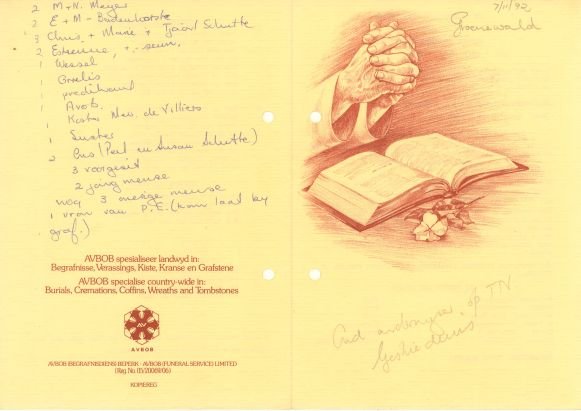 2 M + N. Meyer
2 E + M - Badenhorste
3 Chris, + Marie + Tjaart Schutte
2 Estienne, + - seun,
1 Wessel
1
1 predikant
1 Avob.
1 Koster Mev. de Villiers
1
2 Ons (Piet en Susan Schutte)
3 voorgesit
2 jong mense
nog 3 onesige mense
1 vrou van P.E. (kom laat by
graf.)
AVBOB spesialiseer landwyd in:
Begrafnisse, Verassings, Kiste, Kranse en Grafstene
AVBOB specialise country-wide in:
Burials, Cremations, Coffins, Wreaths and Tombstones
AV
AVBOB
AVBOB (BEGRAFNISDIENS) BEPERK · AVBOB (FUNERAL SERVICE) LIMITED
(Reg. No. 05/20069/06)
KOPIEREG
7/11/92
Groenewald
Oud onderwyser, op TN
Geskiedenis